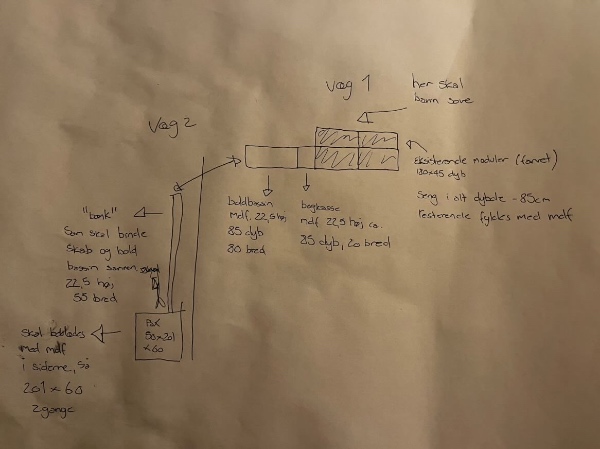 væg 1
her skal
barn sove
væg 2
Eksisterende moduler (farvet)
180x45 dyb
Seng i alt dybde - 85cm
resterende fyldes med mdf
boldbassin
mdf. 22,5 høj
85 dyb
80 bred
bogkasse
mdf 22,5 høj ca.
85 dyb, 20 bred
"bænk"
Som skal binde
skab og bold
bassin sammen
22,5 høj
55 bred
PAX
50x201
x60
skal beklædes
med mdf
i siderne, så
201x60
2 gange